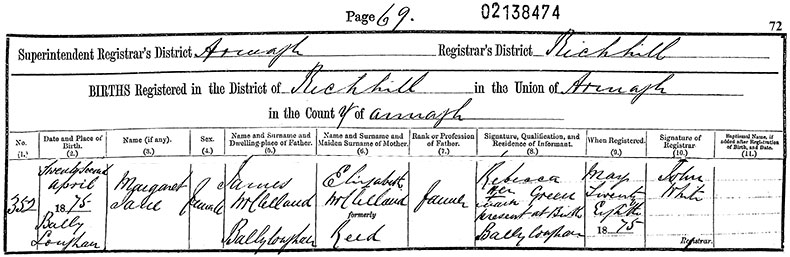 Page 69.
02138474
72
Superintendent Registrar's District Armagh Registrar's District Richhill
BIRTHS Registered in the District of Richhill in the Union of Armagh
in the County of Armagh
No. (1.)
Date and Place of Birth. (2.)
Name (if any). (3.)
Sex. (4.)
Name and Surname and Dwelling-place of Father. (5.)
Name and Surname and Maiden Surname of Mother. (6.)
Rank or Profession of Father. (7.)
Signature, Qualification, and Residence of Informant. (8.)
When Registered. (9.)
Signature of Registrar. (10.)
Baptismal Name, if added after Registration of Birth, and Date. (11.)
352
Twenty Second
April
1875
Bally
Loughan
Margaret
Jane
Female
James
McClelland
Ballyloughan
Elizabeth
McClelland
formerly
Reed
Farmer
Rebecca
Green
her
mark
present at Birth
Ballyloughan
May
Twenty
Eighth
1875
John
White
Registrar.